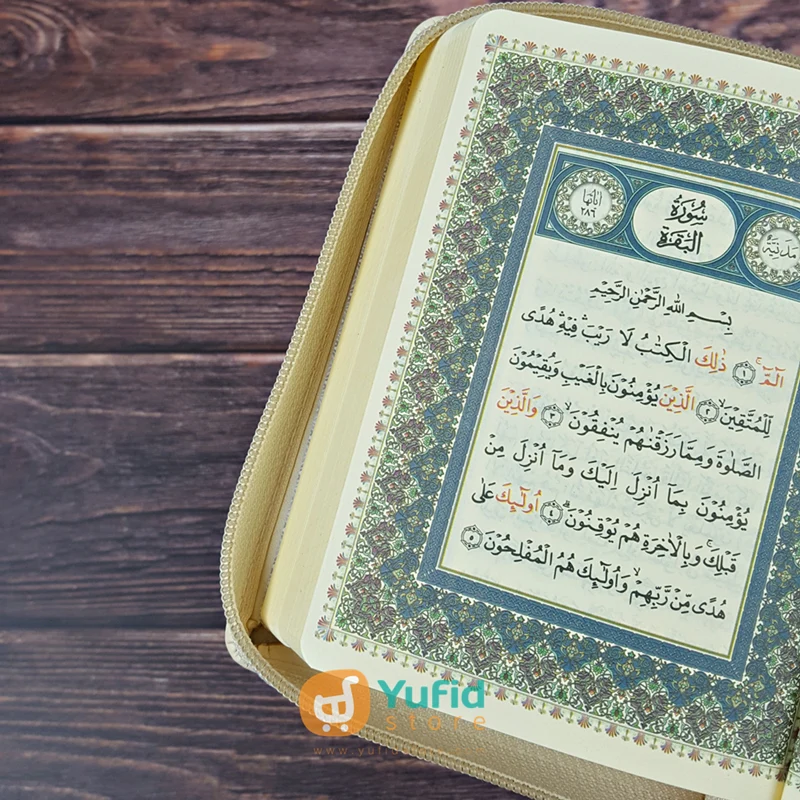 مَدَنِيَّةٌ
سُوْرَةُ الْبَقَرَةِ
اٰيَاتُهَا ٢٨٦
بِسْمِ اللهِ الرَّحْمٰنِ الرَّحِيْمِ
الۤمّۤ ۚ ١ ذٰلِكَ الْكِتٰبُ لَا رَيْبَ ۛ فِيْهِ ۛ هُدًى
لِّلْمُتَّقِيْنَ ۙ ٢ الَّذِيْنَ يُؤْمِنُوْنَ بِالْغَيْبِ وَيُقِيْمُوْنَ
الصَّلٰوةَ وَمِمَّا رَزَقْنٰهُمْ يُنْفِقُوْنَ ۙ ٣ وَالَّذِيْنَ
يُؤْمِنُوْنَ بِمَآ اُنْزِلَ اِلَيْكَ وَمَآ اُنْزِلَ مِنْ
قَبْلِكَ ۚ وَبِالْاٰخِرَةِ هُمْ يُوْقِنُوْنَ ۗ ٤ اُولٰۤىِٕكَ عَلٰى
هُدًى مِّنْ رَّبِّهِمْ ۙ وَاُولٰۤىِٕكَ هُمُ الْمُفْلِحُوْنَ ٥
Yufid
store